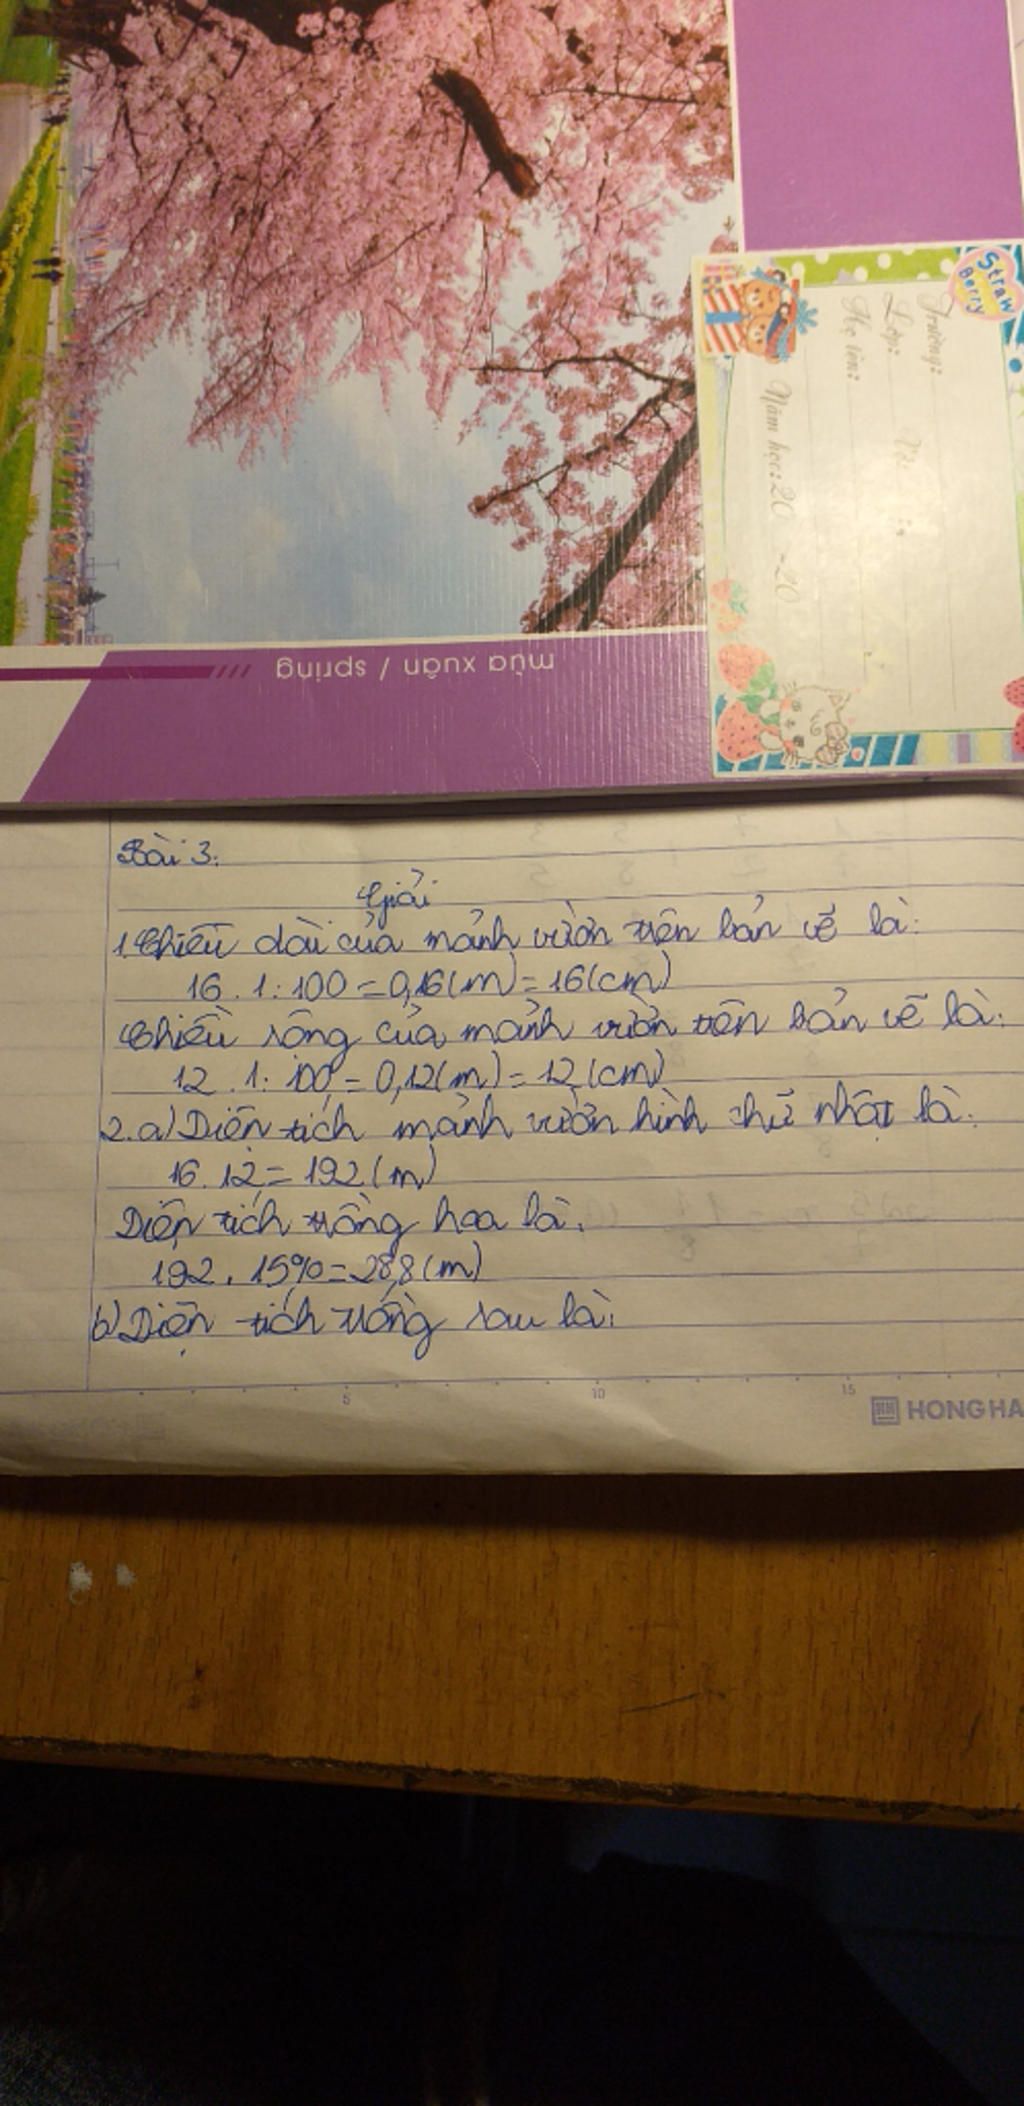 mùa xuân / spring
Straw
Berry
Trường:
Lớp:
Họ tên:
Năm học: 20 - 20
Bài 3:
Giải
1. Chiều dài của mảnh vườn trên bản vẽ là:
16 . 1 : 100 = 0,16 (m) = 16 (cm)
Chiều rộng của mảnh vườn trên bản vẽ là:
12 . 1 : 100 = 0,12 (m) = 12 (cm)
2. a) Diện tích mảnh vườn hình chữ nhật là:
16 . 12 = 192 (m)
Diện tích trồng hoa là:
192 . 15% = 28,8 (m)
b) Diện tích trồng rau là:
5 10 15
HONG HA